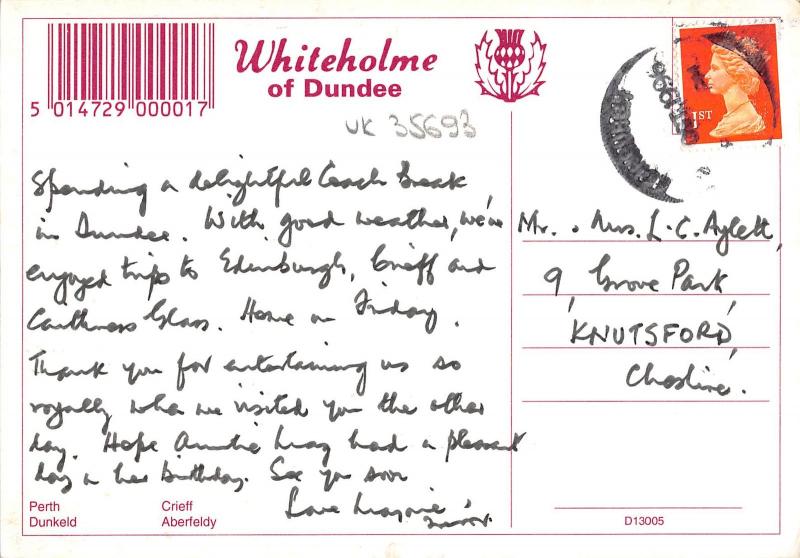 5 014729 000017
Whiteholme
of Dundee
UK 35693
1ST
1996
Spending a delightful Coach Break
in Dundee. With good weather, we've
enjoyed trips to Edinburgh, Crieff and
Caithness Glass. Home on Friday.
Thank you for entertaining us so
royally when we visited you the other
day. Hope Auntie had a pleasant
day on her Birthday. See you soon
Love
Mr. & Mrs. L. C. Aylett,
9, Grove Park,
KNUTSFORD,
Cheshire.
Perth
Dunkeld
Crieff
Aberfeldy
D13005